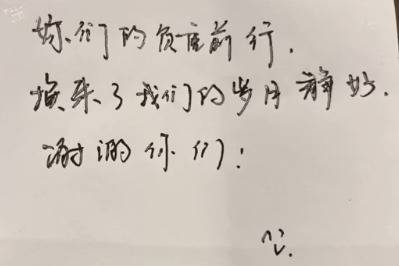 你们的负重前行，
换来了我们的岁月静好.
谢谢你们！